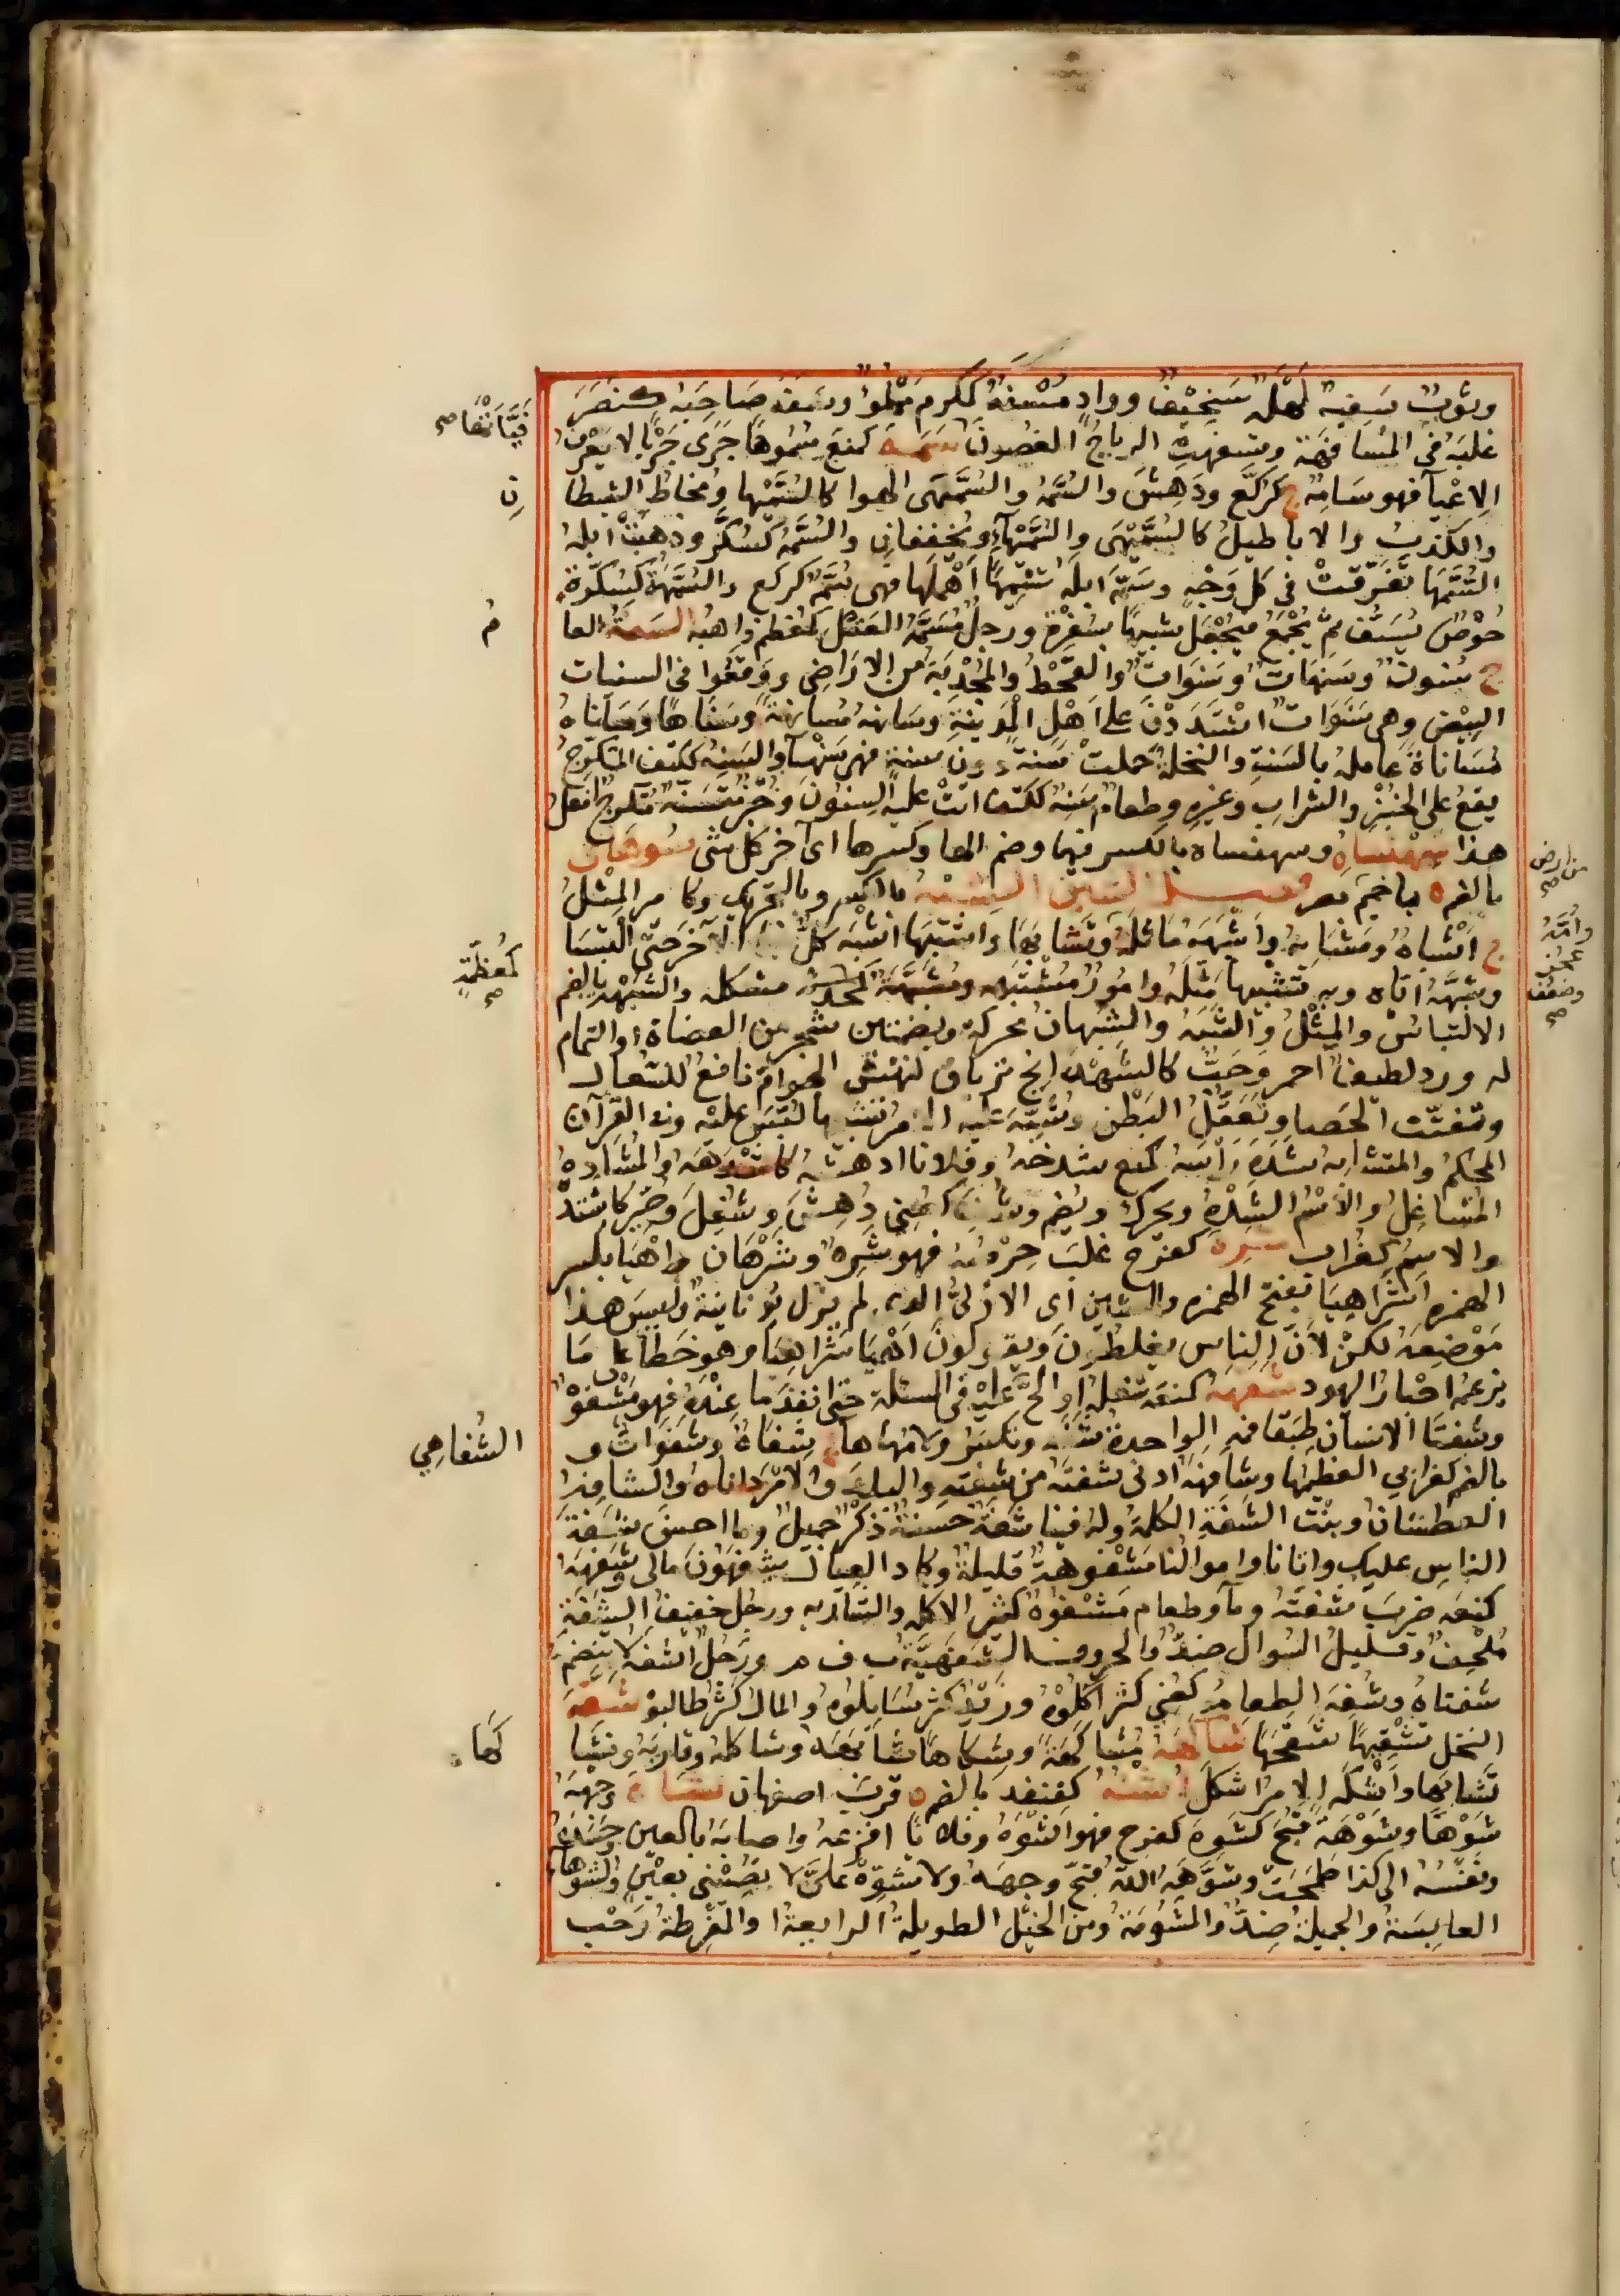 وثوبٌ سَفِيهٌ لَهْلَهٌ سَخِيفٌ ووادٍ مُسْفَهٌ كمُكرم مَمْلُوٌّ وسَفَهَ صَاحِبَهُ كنَصَرَ
غلبَهُ في المُسَافهَة وتسفهتِ الرياحُ الغصُونَ سَمَهَ كمنعَ سُمُوهًا جَرَى جَرْيًا لا يعْرِفُ
فيّأتْها صح
الاِعْيآ فهو سَامِهٌ ج كرُكّع ودَهِشَ والسُّمَّهُ والسُّمَّهَى الهوا كالسُّمَّيْها ومُخاطُ الشيطا
نِ
والكذبُ والاباطيلُ كالسُّمَّيْهَى والسُّمَّيْهَآ ويُخففانِ والسُّمَّهُ كسُكَّرٍ وذهبتْ ابلهُ
السُّمَّهَا تفَرّقتْ في كل وَجْهٍ وسَمَّهَ ابلَهُ تسْمِيهًا اَهْمَلَها فهى سُمَّهٌ كركع والسُّمَّهَةُ كسُكّرةٍ
خُوْصٌ يُسَفُّ ثمّ يُجْمَعُ فيُجْعَل شبيهًا بسُفْرَةٍ ورجلٌ مُسَمَّهُ العَقل كمُعظم ذاهبُه السَنَةُ العا
مُ
ج سِنونَ وسَنهَاتٌ وسَنَوَاتٌ والقَحْطُ والمُجْدِبَةُ من الاراضِى ووَقعُوا فى السنيات
البِيْض وهى سَنَوَاتٌ اشْتَدَدْنَ على اَهْلِ الْمَدِينَةِ وسَانههُ مُسانهَةً وسنَاهًا وَسَاناهُ
مُسَاناةً عَامله بالسَنةِ والنخلةُ حملتْ سَنةً دون سنةٍ فهى سَنْهَآ والسَنِهُ ككتف المُتكرّجُ
يقعُ على الخُبْزِ والشرابِ وغيره وطعامٌ سَنِهٌ ككتف اتتْ عليه السِنُونَ وخبْزٌ مُتَسَنّهٌ مُتكرجٌ افعل
هذا سِهِنْسَاهُ وسهنساه بالكسر فيهما وضم الها وكسرها اى آخر كل شى سُوهَاى
بالضم ة باخميم بمصر فصـــل الشين الشِبْهُ بالكسر وبالتحريك وكامير المِثْلُ
من ارض صح
ج اَشْباهٌ ومَشَابِهُ واَشْبَهَهُ مَاثلهُ وتشابهَا واشتبهَا اشْبَهَ كلٌّ الآخَرَ حتى التبسَا
وأمَّهُ
عَجز
وضعُف
صح
وشبَّهَهُ ايّاه وبه تشبيهًا مَثّلهُ وامُورٌ مُشتبِهَه ومُشَبَّهَةٌ مشكله والشُبْهةُ بالضم
كمُعظّمةٍ
صح
الالتباسُ والمِثْلُ والشَّبَهُ والشَبَهَانُ مُحركةً وبضمتين شجر من العضاة او الثمام
له ورد لطيف احمر وحَبٌّ كالشَهْدَانج ترياق لنهْش الهوامّ نافع للسُعال
ويُفتّت الحَصى ويَعْقِلُ البَطْن وشُبّهَ عَليه الامْرُ لبّسَ عليْه وفى القرآن
المُحكمُ والمتشابه شَدَهَ رَأسَهُ كمنع شدخهُ وفلانا ادهشهُ كأشدَههُ والمُشَادِهُ
المشاغِلُ والاسْمُ الشَّدْهُ ويحركُ ويُضم وشُدِهَ كعُنى دُهِشَ وشُغِلَ وحُيّرَ كاشتَدَه
والاسمُ كغُراب شَرِهَ كفرح غلبَ حِرْصُه فهو شَرِهٌ وشَرْهان واِهْيَا بكسر
الهمزه اَشَراهِيَا بفتح الهمزه والشين اى الازلىّ الذى لم يزل يُونانيةٌ وليس هذا
مَوْضِعَهُ لكنْ لاَنَّ النّاس يغلطُونَ ويقولونَ اَهْيَا شَرَاهِيَا وهو خطأ على مَا
يزعمُه احْبارُ اليهود شَفَهَهُ كمنعَه شغلهُ اوالحّ عليه فى المسئلة حتى انفدَ ما عِنْدَهُ فهو مَشْفوْهٌ
وشفَتَا الانسان طبَقا فمه الواحدة شَفَةٌ وتُكسَرُ ولامُها هآ ج شِفاهٌ وشَفَوَاتٌ و
الشُفاهِي
بالضم كغرابي العظيمها وشافَهَهُ ادنى شفتَه من شفته والبلدَ والامْرَ داناه والشافِهُ
العطشانُ وبنْتُ الشفَةِ الكلمة وله فينا شَفَةٌ حَسَنَةٌ ذكْرٌ جميلٌ وما احسنَ شَفَةَ
الناسِ عليك واتانا واموالنا مَشْفُوهةٌ قليلةٌ وكاد العيال يشفَهُونَ مَالي وشَفَهَهُ
كمنعَه ضربَ شفَتَهُ ومآ وطعام مَشْفوْهٌ كثير الاكله والشاربه ورجُل خفيفُ الشَفَةِ
مُلْحِفٌ وقليلُ السُوال ضدٌّ والحروفُ الشَفهِيَّةُ ب ف م ورَجُلٌ اشفَهُ لا تنضمُّ
شفتاهُ وشُفِهَ الطعامُ كعُنى كثر آكلُوْهُ وزيْدٌ كثر سَايلُوه والمالُ كثرَ طالبوْ شَقّهَ
النخل تَشْقِيهًا شقّحَهَا شَاكَهَهُ مُشاكهَةً وشِكاهًا شابَهَهُ وشاكلهُ وقارَبهُ وتشا
كَها.
تَشابهَا واَشْكَهَ الامرُ اشكَل كقنفد بالضم ة قربَ اصبهان شَاهَ وَجْههُ
شَوْهًا وشَوْهَةً قبُحَ كشَوِهَ كفرح فهو اَشْوَهُ وفلانًا افزعهُ واصابَهُ بالعين وحَسَدهُ
ونفسُهُ الى كذا طمَحَتْ وشوَّهَهُ اللّهُ قبّحَ وجههُ ولا تشوّهْ علىَّ لا تُصِبْنى بعَيْن والشوْهَآ
العابِسَةُ والجميلةُ ضِدٌّ والمشؤمَةُ ومن الخيْل الطويلةُ الرايعةُ والمُفْرِطةُ رَحْب